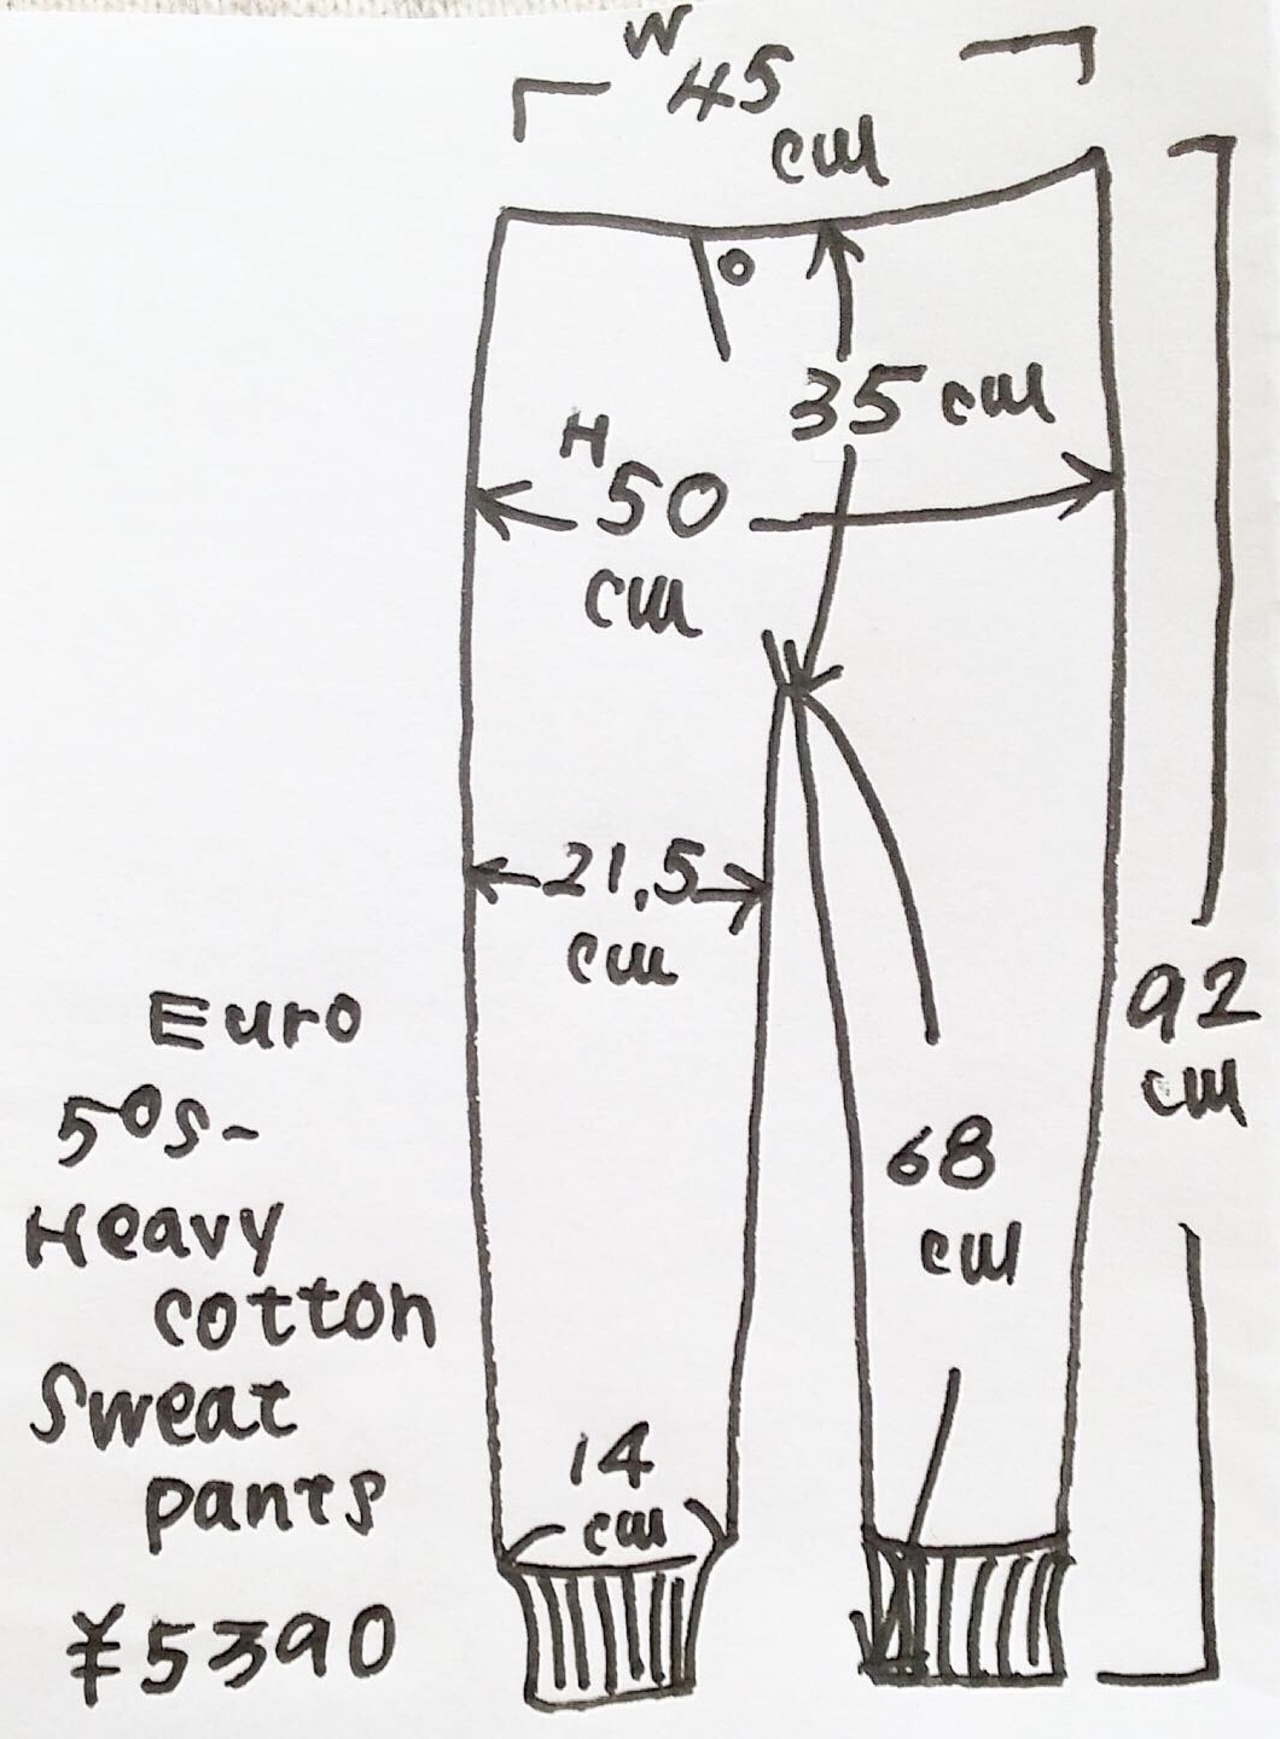 W
45
cm
35 cm
H
50
cm
21,5
cm
Euro
50s-
Heavy
cotton
Sweat
pants
¥5390
92
cm
68
cm
14
cm